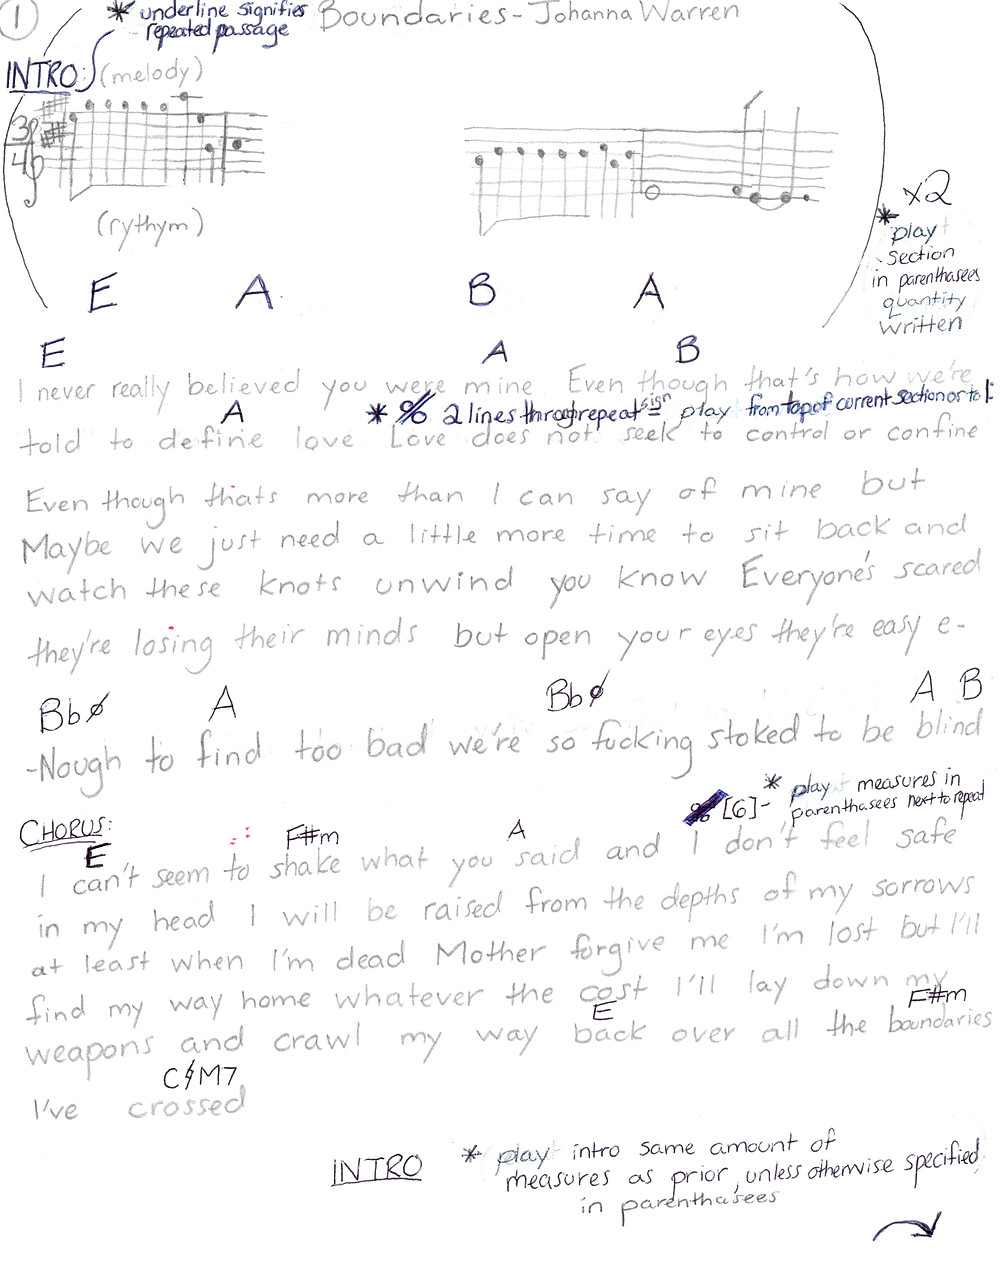 1
* underline signifies
repeated passage
Boundaries - Johanna Warren
INTRO: (melody)
3
4
(rythym)
x2
* play
section
in parenthasees
quantity
written
E A B A
E A B
I never really believed you were mine Even though that's how we're
A * % 2 lines through repeat sign = play from top of current section or to |:
told to define love Love does not seek to control or confine
Even though thats more than I can say of mine but
Maybe we just need a little more time to sit back and
watch these knots unwind you know Everyone's scared
they're losing their minds but open your eyes they're easy e-
Bbø A Bbø A B
-Nough to find too bad we're so fucking stoked to be blind
% [6]- * play measures in
parenthasees next to repeat
CHORUS:
E F#m A
I can't seem to shake what you said and I don't feel safe
in my head I will be raised from the depths of my sorrows
at least when I'm dead Mother forgive me I'm lost but I'll
find my way home whatever the cost I'll lay down my
E F#m
weapons and crawl my way back over all the boundaries
I've crossed
INTRO * play intro same amount of
measures as prior, unless otherwise specified
in parenthasees